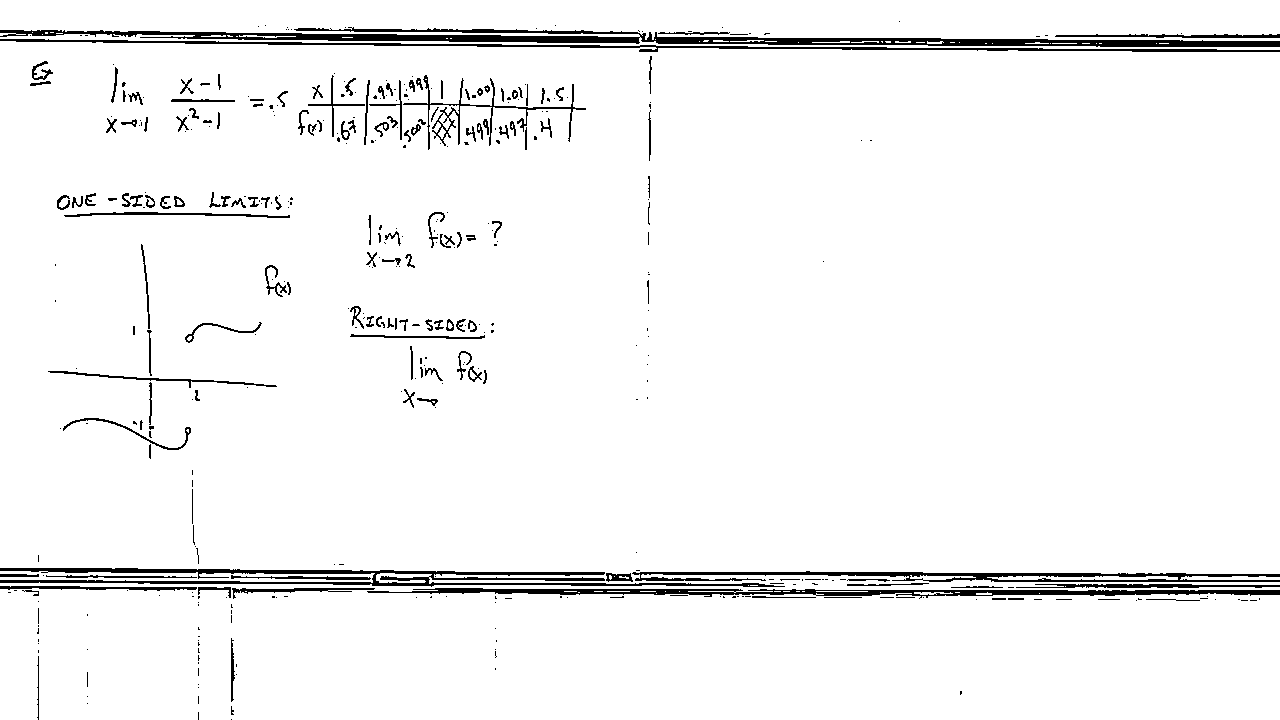 Ex lim x→1 x-1 / x²-1 = .5
x | .5 | .99 | .999 | 1 | 1.001 | 1.01 | 1.5
f(x) | .67 | .503 | .5002 | | .499 | .497 | .4
ONE-SIDED LIMITS:
lim x→2 f(x) = ?
f(x)
1
2
-1
RIGHT-SIDED:
lim x→ f(x)